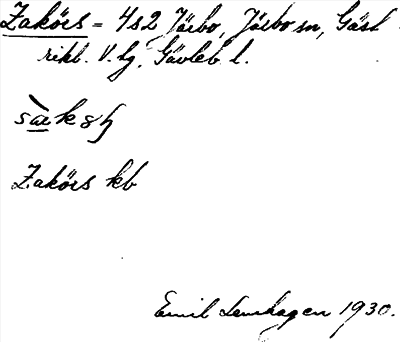 Zakörs = 4s2 Järbo, Järbo sn, Gästrikl. V. tg, Gävleb. l.
Zakörs kb
Emil Lenhagen 1930.